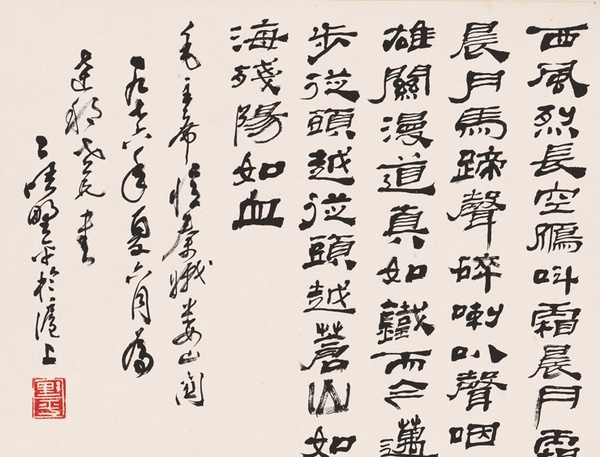 西風烈長空鴈叫霜晨月霜
晨月馬蹄聲碎喇叭聲咽
雄關漫道真如鐵而今邁
步從頭越從頭越蒼山如
海殘陽如血
毛主席憶秦娥婁山關
一九七六年夏六月為
書
野平於滬上